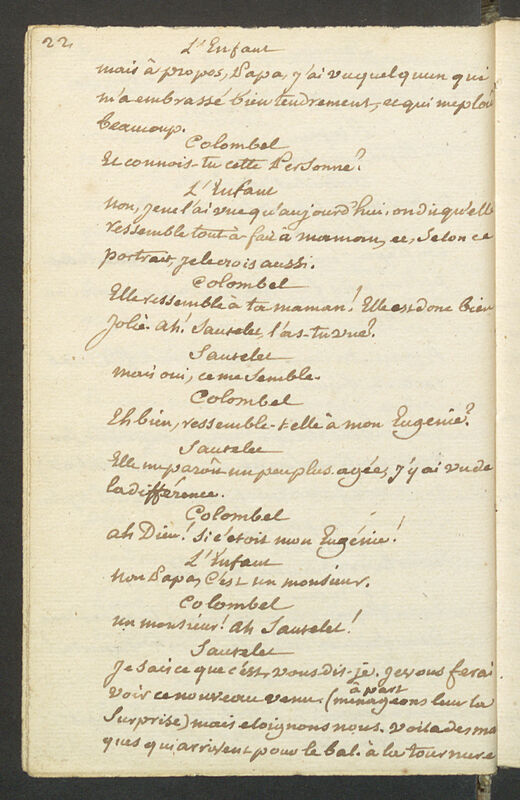 22
L'Enfant
mais à propos, Papa, j'ai vu quelqu'un qui
m'a embrassé bien tendrement, et qui me plait
beaucoup.
Colombel
Et connois-tu cette Personne?
L'Enfant
non, je ne l'ai vue qu'aujourd'hui, on dit qu'elle
ressemble tout-à-fait à maman, et, selon ce
portrait, je le crois aussi.
Colombel
Elle ressemble à ta maman! Elle est donc bien
jolie. Ah! Sautelet, l'as-tu vue?
Sautelet
mais oui, ce me semble.
Colombel
Eh bien, ressemble-t-elle à mon Eugénie?
Sautelet
Elle m'paroît un peu plus agée, j'y ai vu de
la différence.
Colombel
ah Dieu! Si c'étoit mon Eugénie!
L'Enfant
non Papa, C'est un monsieur.
Colombel
un monsieur! ah Sautelet!
Sautelet
Je sais ce que c'est, vous dis-je. Je vous ferai
voir ce nouveau venu. (à part ménageons leur la
Surprise) mais eloignons nous. voila des mas
ques qui arrivent pour le bal. à la tournure